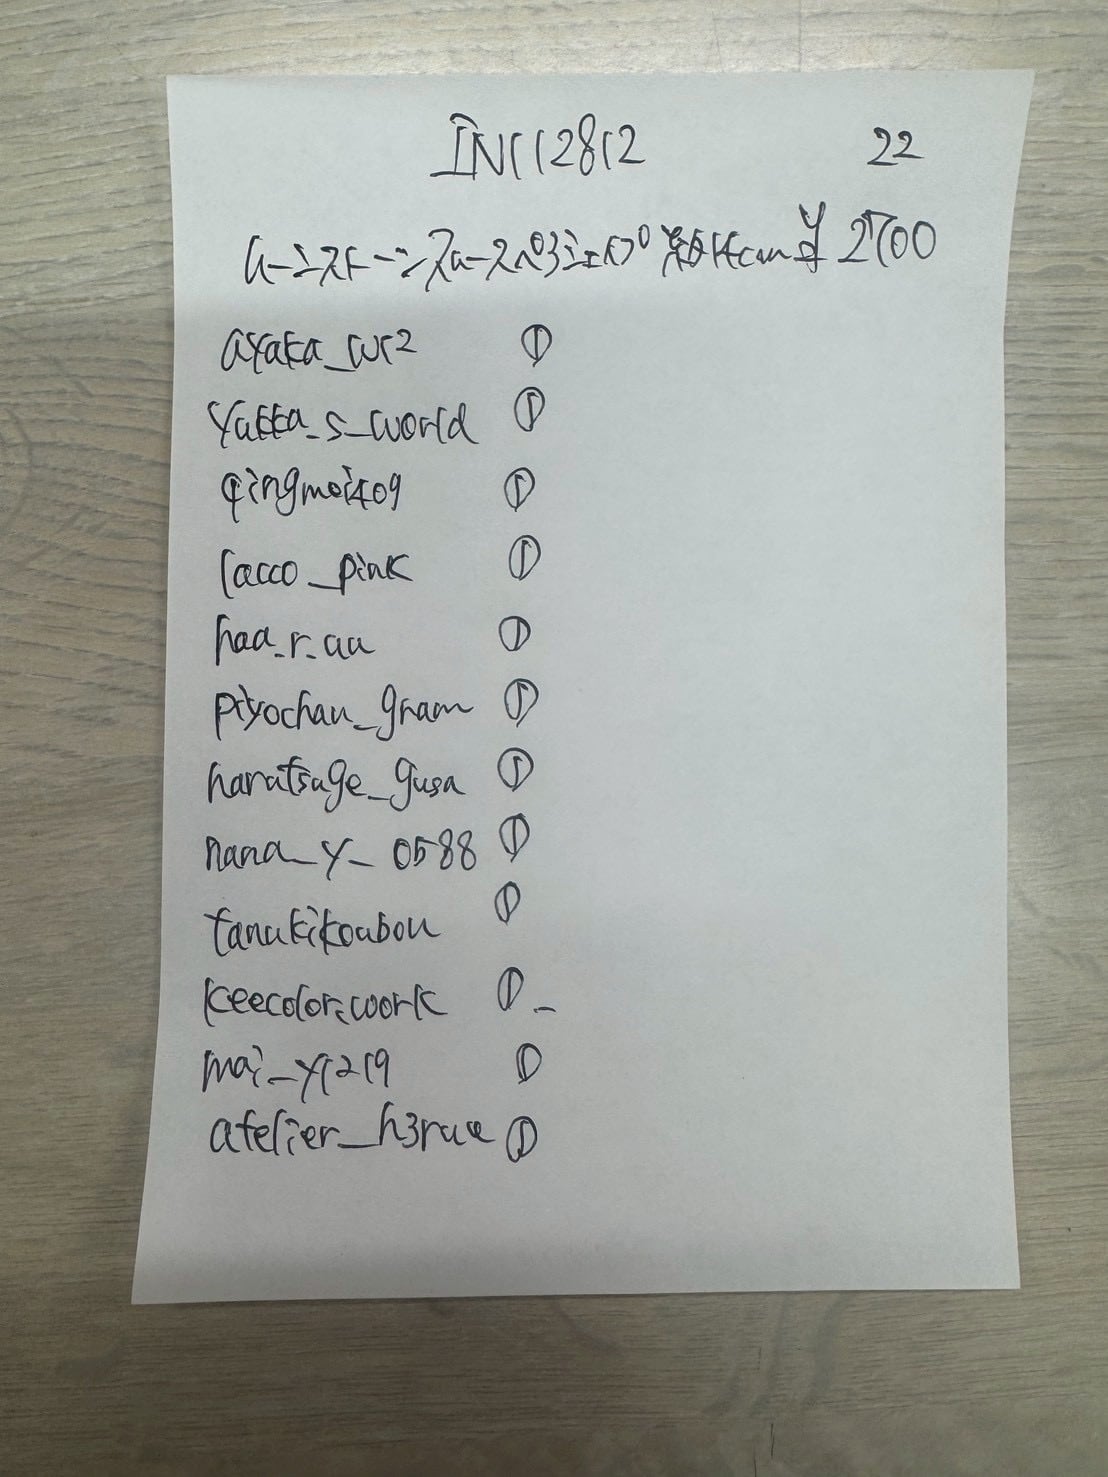 INC12812 22
ムーンストーンスムースペアシェイプ 約14cm ¥2700
ayaka_w12 ①
yukka_s_world ①
qingmei409 ①
lacco_pink ①
haa_r_au ①
piyochan_gram ①
haratsuge_gusa ①
nana_y_0588 ①
tanukikoubou ①
keecolor.work ①
mai_y1219 ①
atelier_h3rue ①